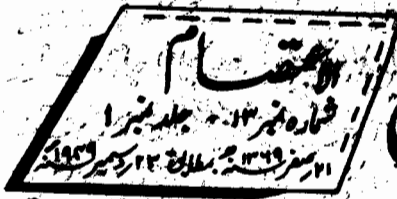 الاعتصام
شمارہ نمبر ۱۳ - جلد نمبر ۱
۲۱ صفر ۱۳۶۹ھ بمطابق ۲۳ دسمبر ۱۹۴۹ء